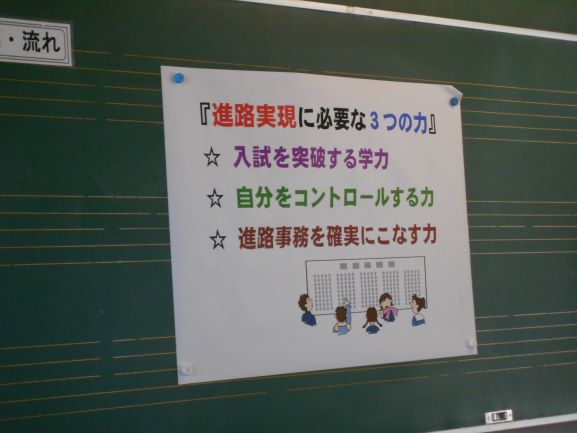 ・流れ
『進路実現に必要な3つの力』
☆ 入試を突破する学力
☆ 自分をコントロールする力
☆ 進路事務を確実にこなす力